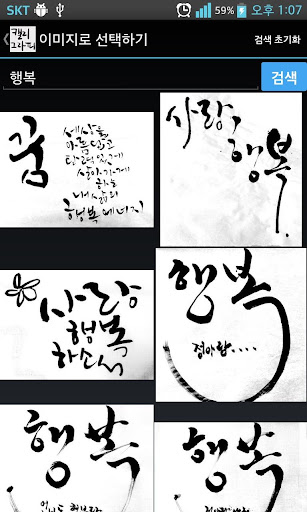 SKT 59% 오후 1:07
캘리
그라피
이미지로 선택하기
검색 초기화
행복
검색
꿈
세상을
아름답고
살아가게
하는
내 삶의
행복 에너지
사랑,
행복
사랑
행복
하소서
행복
정아람....
행복
행복